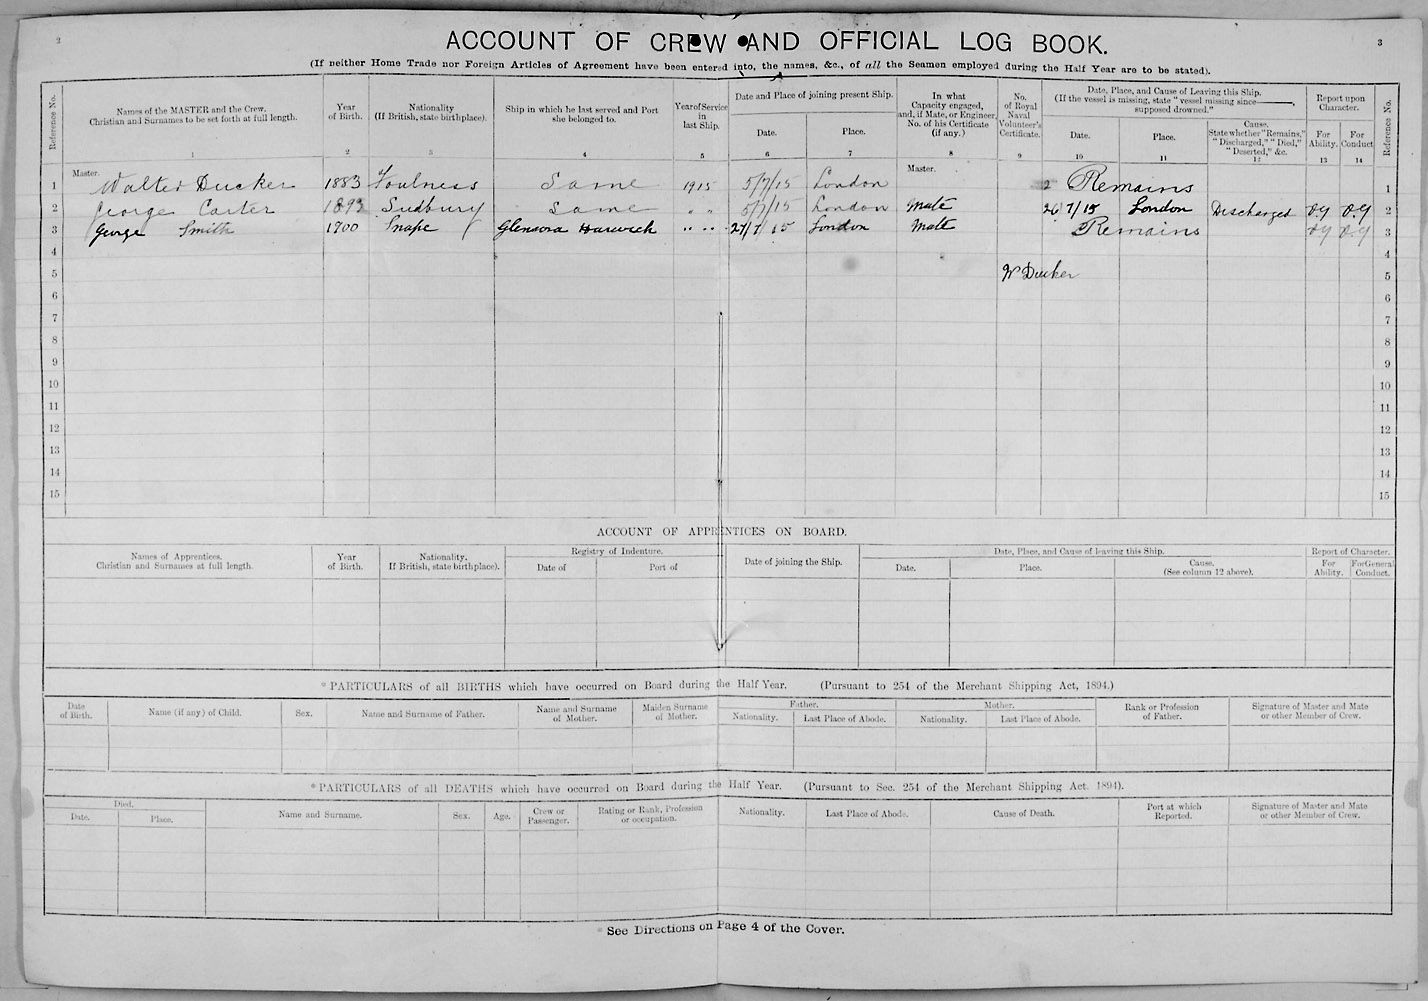 2
3
ACCOUNT OF CREW AND OFFICIAL LOG BOOK.
(If neither Home Trade nor Foreign Articles of Agreement have been entered into, the names, &c., of all the Seamen employed during the Half Year are to be stated).
Reference No.
Names of the MASTER and the Crew.
Christian and Surnames to be set forth at full length.
1
Year
of Birth.
2
Nationality
(If British, state birthplace).
3
Ship in which he last served and Port
she belonged to.
4
Year of Service
in
last Ship.
5
Date and Place of joining present Ship.
Date.
6
Place.
7
In what
Capacity engaged,
and, if Mate, or Engineer,
No. of his Certificate
(if any.)
8
No.
of Royal
Naval
Volunteer's
Certificate.
9
Date, Place, and Cause of Leaving this Ship.
(If the vessel is missing, state "vessel missing since———,
supposed drowned."
Date.
10
Place.
11
Cause.
State whether "Remains,"
"Discharged," "Died,"
"Deserted," &c.
12
Report upon
Character.
For
Ability.
13
For
Conduct
14
Reference No.
Master.
Master.
1 Walter Ducker 1883 Foulness Same 1915 5/7/15 London Remains 1
2 George Carter 1893 Sudbury Same " " 5/7/15 London Mate 26/7/15 London Discharged 2
3 George Smith 1900 Snape Harwich " " 27/7/15 London Mate Remains 3
4 4
5 W Ducker 5
6 6
7 7
8 8
9 9
10 10
11 11
12 12
13 13
14 14
15 15
ACCOUNT OF APPRENTICES ON BOARD.
Names of Apprentices.
Christian and Surnames at full length.
Year
of Birth.
Nationality.
If British, state birthplace).
Registry of Indenture.
Date of
Port of
Date of joining the Ship.
Date, Place, and Cause of leaving this Ship.
Date.
Place.
Cause.
(See column 12 above).
Report of Character.
For
Ability.
For General
Conduct.
*PARTICULARS of all BIRTHS which have occurred on Board during the Half Year. (Pursuant to 254 of the Merchant Shipping Act, 1894.)
Date
of Birth.
Name (if any) of Child.
Sex.
Name and Surname of Father.
Name and Surname
of Mother.
Maiden Surname
of Mother.
Father.
Nationality.
Last Place of Abode.
Mother.
Nationality.
Last Place of Abode.
Rank or Profession
of Father.
Signature of Master and Mate
or other Member of Crew.
*PARTICULARS of all DEATHS which have occurred on Board during the Half Year. (Pursuant to Sec. 254 of the Merchant Shipping Act. 1894).
Died.
Date.
Place.
Name and Surname.
Sex.
Age.
Crew or
Passenger.
Rating or Rank, Profession
or occupation.
Nationality.
Last Place of Abode.
Cause of Death.
Port at which
Reported.
Signature of Master and Mate
or other Member of Crew.
See Directions on Page 4 of the Cover.